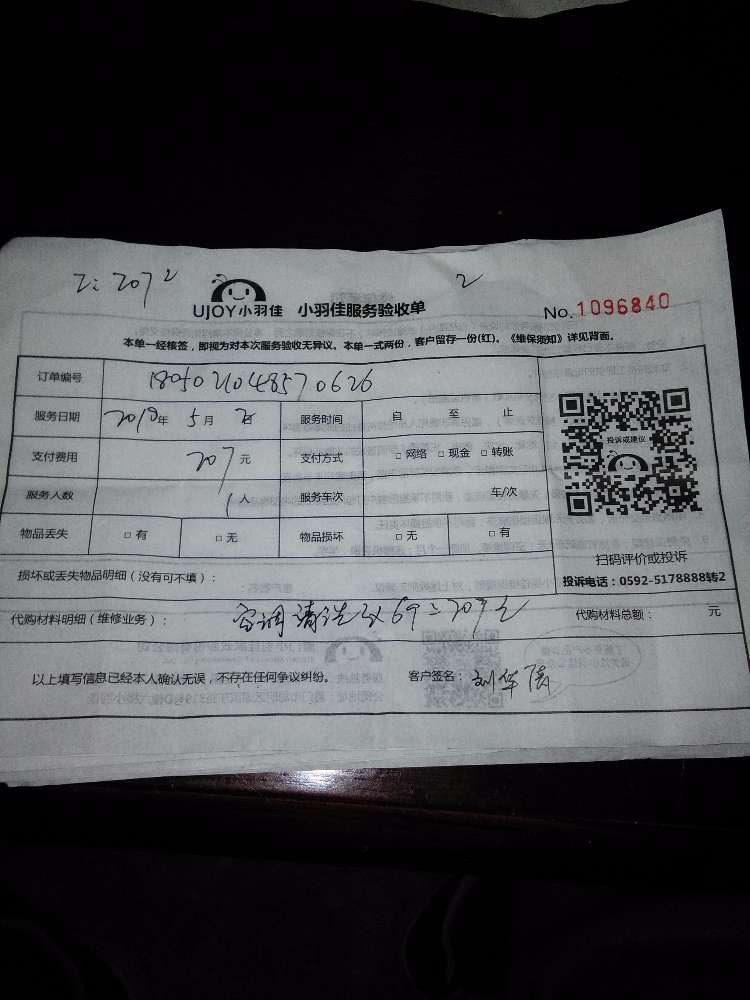 2: 207 2 2
UJOY小羽佳 小羽佳服务验收单 No.1096840
本单一经核签，即视为对本次服务验收无异议。本单一式两份，客户留存一份(红)。《维保须知》详见背面。
订单编号 180502104857 0626
服务日期 2018年 5月 2日 服务时间 自 至 止
支付费用 207元 支付方式 □网络 □现金 □转账
服务人数 1人 服务车次 车/次
物品丢失 □有 □无 物品损坏 □无 □有
投诉或建议
扫码评价或投诉
投诉电话：0592-5178888转2
损坏或丢失物品明细（没有可不填）：
代购材料明细（维修业务）： 空调清洗3x69=207元 代购材料总额： 元
以上填写信息已经本人确认无误，不存在任何争议纠纷。 客户签名：刘华